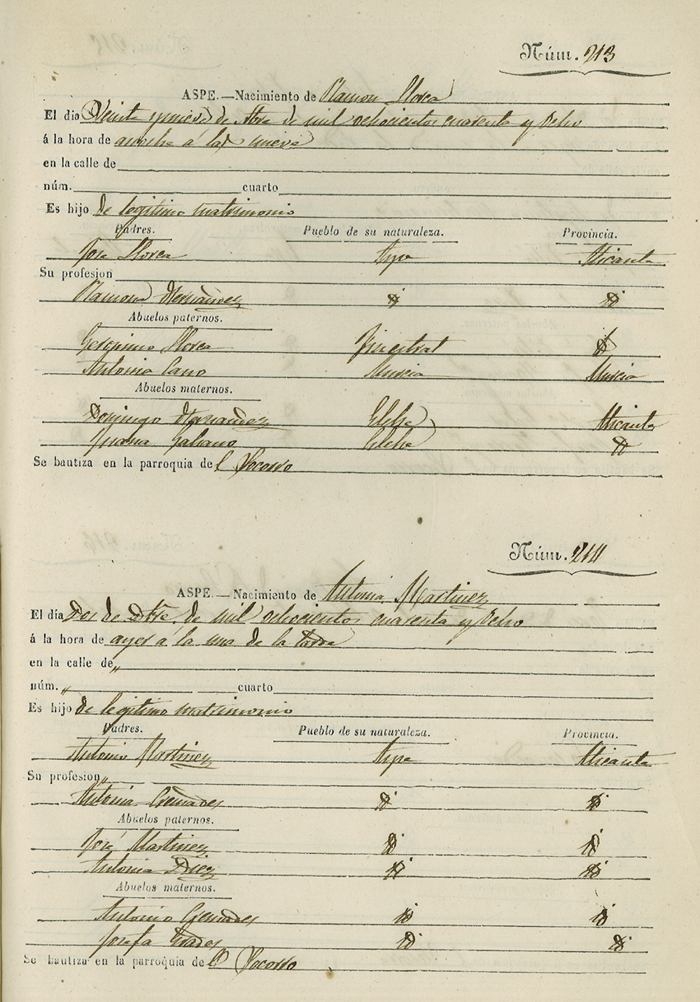 Núm. 213
ASPE.—Nacimiento de Ramon Llorca
El dia Veinte y nueve de Nbre de mil ochocientos cuarenta y Ocho
á la hora de anoche á las nueve
en la calle de
núm. cuarto
Es hijo de legitimo matrimonio
Padres. Pueblo de su naturaleza. Provincia.
José Llorca Aspe Alicante
Su profesion
Ramona Hernandez id id
Abuelos paternos.
Geronimo Llorca Finestrat id
Antonia Cano Murcia Murcia
Abuelos maternos.
Domingo Hernandez Elche Alicante
Juana Galiano Elche id
Se bautiza en la parroquia de l Socorro
Núm. 214
ASPE.—Nacimiento de Antonia Martinez
El dia Dos de Dbre de mil ochocientos cuarenta y Ocho
á la hora de ayer á la una de la tarde
en la calle de „
núm. „ cuarto
Es hijo de legitimo matrimonio
Padres. Pueblo de su naturaleza. Provincia.
Antonio Martinez Aspe Alicante
Su profesion „
Antonia Cremades id id
Abuelos paternos.
José Martinez id id
Antonia Diez id id
Abuelos maternos.
Antonio Cremades id id
Josefa Prados id id
Se bautiza en la parroquia de l Socorro